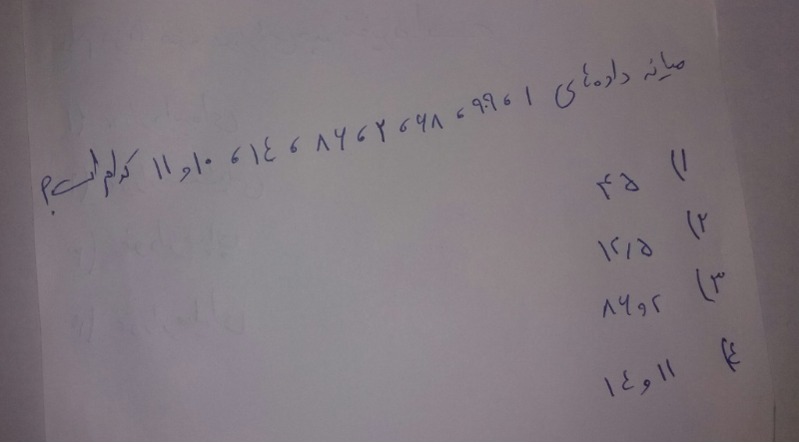 میانه داده‌های ۱، ۹۹، ۶۸، ۲، ۸۶، ۱۴، ۱۰ و ۱۱ کدام است؟
۱) ۴۵
۲) ۱۲/۵
۳) ۲ و ۸۶
۴) ۱۱ و ۱۴